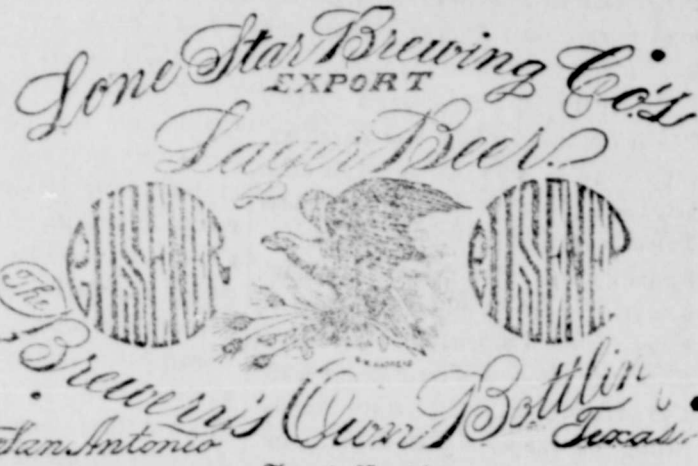 Lone Star Brewing Co's
EXPORT
Lager Beer.
PILSENER
PILSENER
The
Brewery's Own Bottlin
San Antonio
Texas.